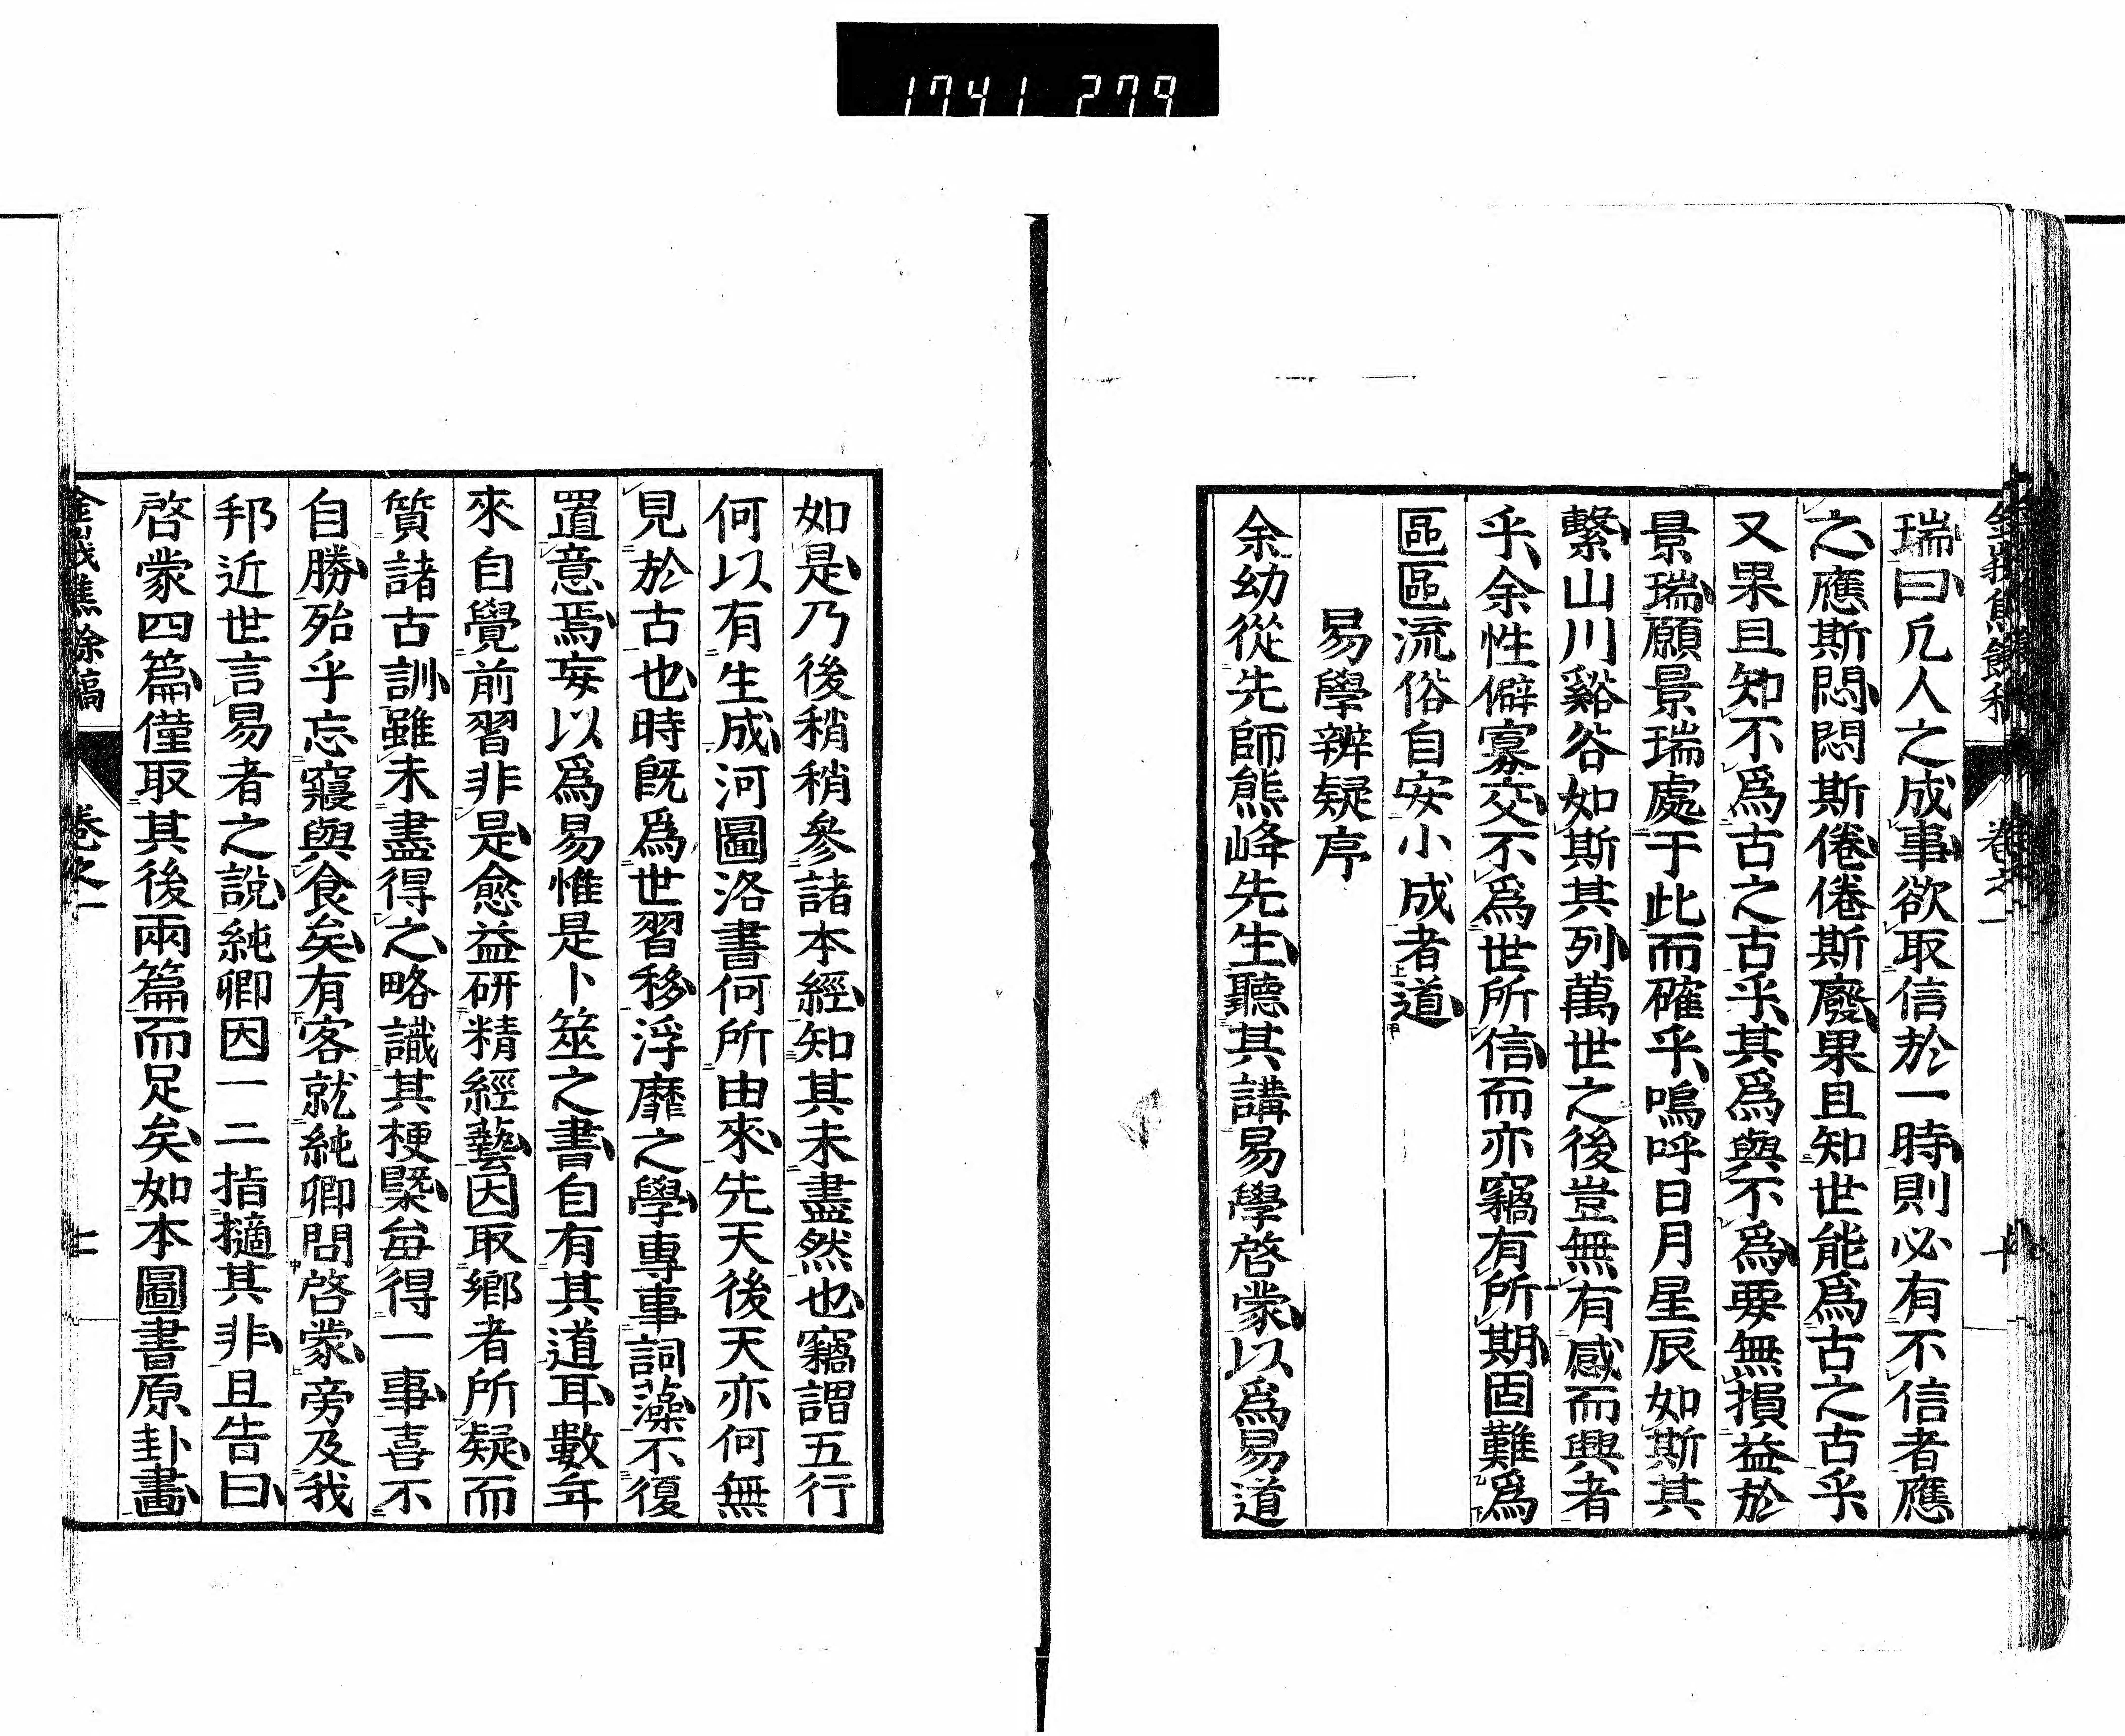 1741 279
瑞曰凢人之成事欲取信於一時則必有不信者應
之應斯悶悶斯倦倦斯廢果且知世能爲古之古乎
又果且知不爲古之古乎其爲與不爲要無損益於
景瑞願景瑞處于此而確乎嗚呼日月星辰如斯其
繫山川谿谷如斯其列萬世之後豈無有感而興者
乎余性僻寡交不爲世所信而亦竊有所期固難爲
區區流俗自安小成者道
易學辨疑序
余幼從先師熊峰先生聽其講易學啓蒙以爲易道
如是乃後稍稍參諸本經知其未盡然也竊謂五行
何以有生成河圖洛書何所由來先天後天亦何無
見於古也時既爲世習移浮靡之學專事詞藻不復
置意焉妄以爲易惟是卜筮之書自有其道耳數年
來自覺前習非是愈益研精經藝因取鄉者所疑而
質諸古訓雖未盡得之略識其梗槩每得一事喜不
自勝殆乎忘寢與食矣有客就純卿問啓蒙旁及我
邦近世言易者之說純卿因一二指擿其非且告曰
啓蒙四篇僅取其後兩篇而足矣如本圖書原卦畫
卷之一